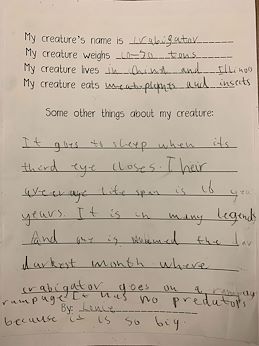 My creature's name is crabigator
My creature weighs 10-50 tons
My creature lives in China and Illinoo
My creature eats meat, plants and insects
Some other things about my creature:
It goes to sleep when its
third eye closes. Their
average life span is 16 yea
years. It is in many legends
And one is named the
darkest month where
crabigator goes on a rampag
rampage It has no predators
By:
because it is so big.